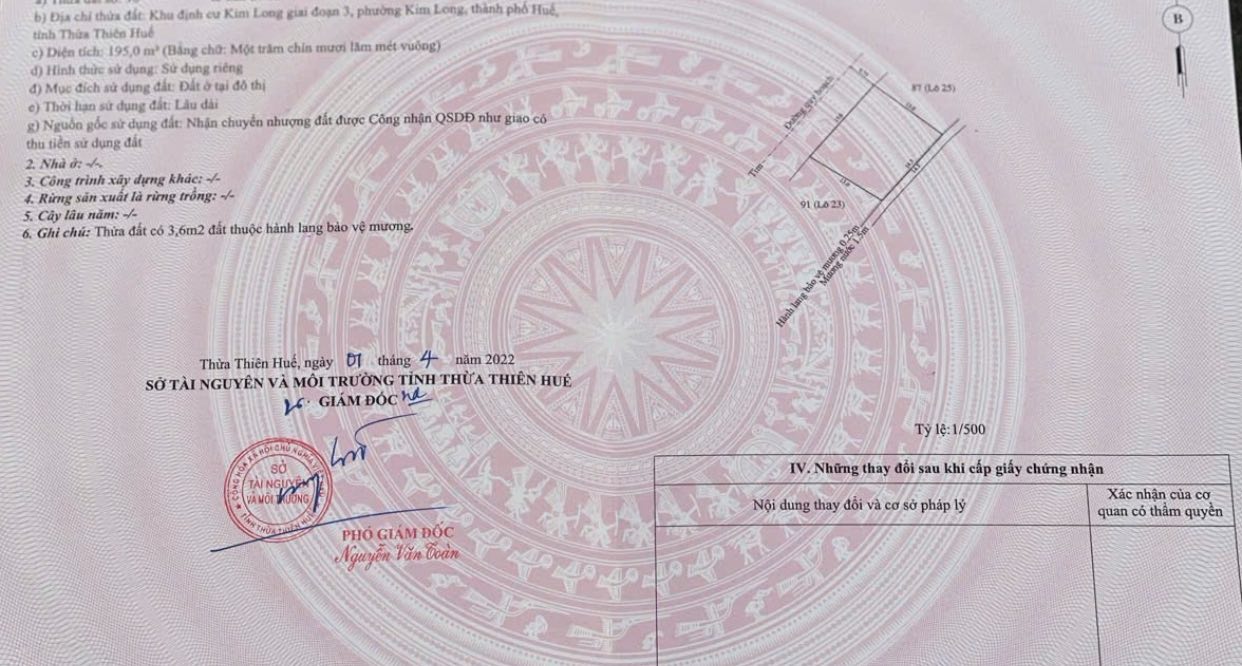 b) Địa chỉ thửa đất: Khu định cư Kim Long giai đoạn 3, phường Kim Long, thành phố Huế,
tỉnh Thừa Thiên Huế
c) Diện tích: 195,0 m² (Bằng chữ: Một trăm chín mươi lăm mét vuông)
d) Hình thức sử dụng: Sử dụng riêng
đ) Mục đích sử dụng đất: Đất ở tại đô thị
e) Thời hạn sử dụng đất: Lâu dài
g) Nguồn gốc sử dụng đất: Nhận chuyển nhượng đất được Công nhận QSDĐ như giao có
thu tiền sử dụng đất
2. Nhà ở: -/-.
3. Công trình xây dựng khác: -/-
4. Rừng sản xuất là rừng trồng: -/-
5. Cây lâu năm: -/-
6. Ghi chú: Thửa đất có 3,6m2 đất thuộc hành lang bảo vệ mương.
B
Tim
Đường quy hoạch
87 (Lô 25)
91 (Lô 23)
Hành lang bảo vệ mương 0.25m
Mương nước 1.5m
Tỷ lệ:1/500
Thừa Thiên Huế, ngày 01 tháng 4 năm 2022
SỞ TÀI NGUYÊN VÀ MÔI TRƯỜNG TỈNH THỪA THIÊN HUẾ
GIÁM ĐỐC
CỘNG HÒA XÃ HỘI CHỦ NGHĨA
SỞ
TÀI NGUYÊN
VÀ MÔI TRƯỜNG
TỈNH THỪA THIÊN HUẾ
PHÓ GIÁM ĐỐC
Nguyễn Văn Toàn
IV. Những thay đổi sau khi cấp giấy chứng nhận
Nội dung thay đổi và cơ sở pháp lý
Xác nhận của cơ
quan có thẩm quyền